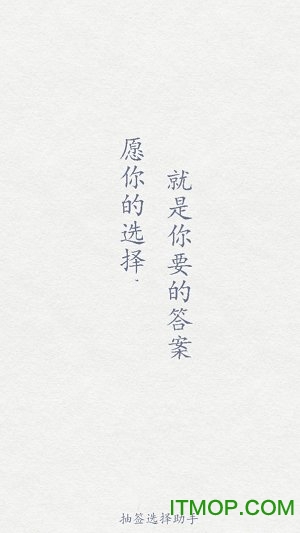 愿你的选择.
就是你要的答案
抽签选择助手
ITMOP.COM